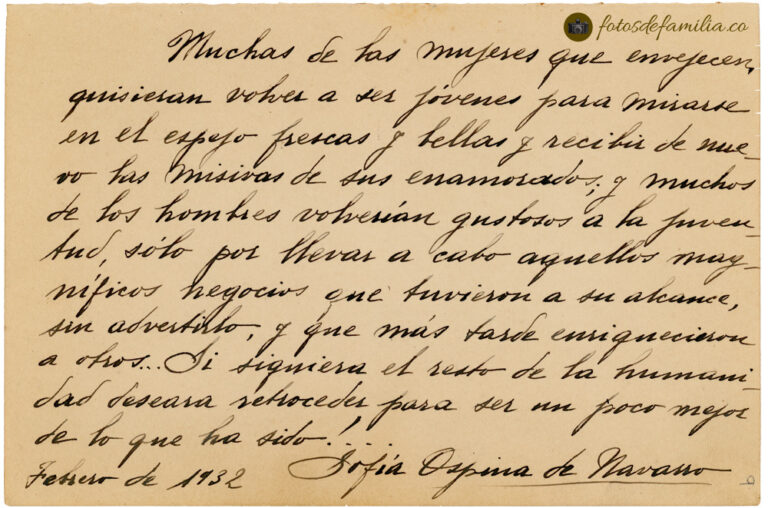 fotosdefamilia.co
Muchas de las mujeres que envejecen,
quisieran volver a ser jóvenes para mirarse
en el espejo frescas y bellas y recibir de nue-
vo las misivas de sus enamorados; y muchos
de los hombres volverían gustosos a la juven-
tud, sólo por llevar a cabo aquellos mag-
níficos negocios que tuvieron a su alcance,
sin advertirlo, y que más tarde enriquecieron
a otros... Si siquiera el resto de la humani-
dad deseara retroceder para ser un poco mejor
de lo que ha sido!....
Febrero de 1932 Sofía Ospina de Navarro